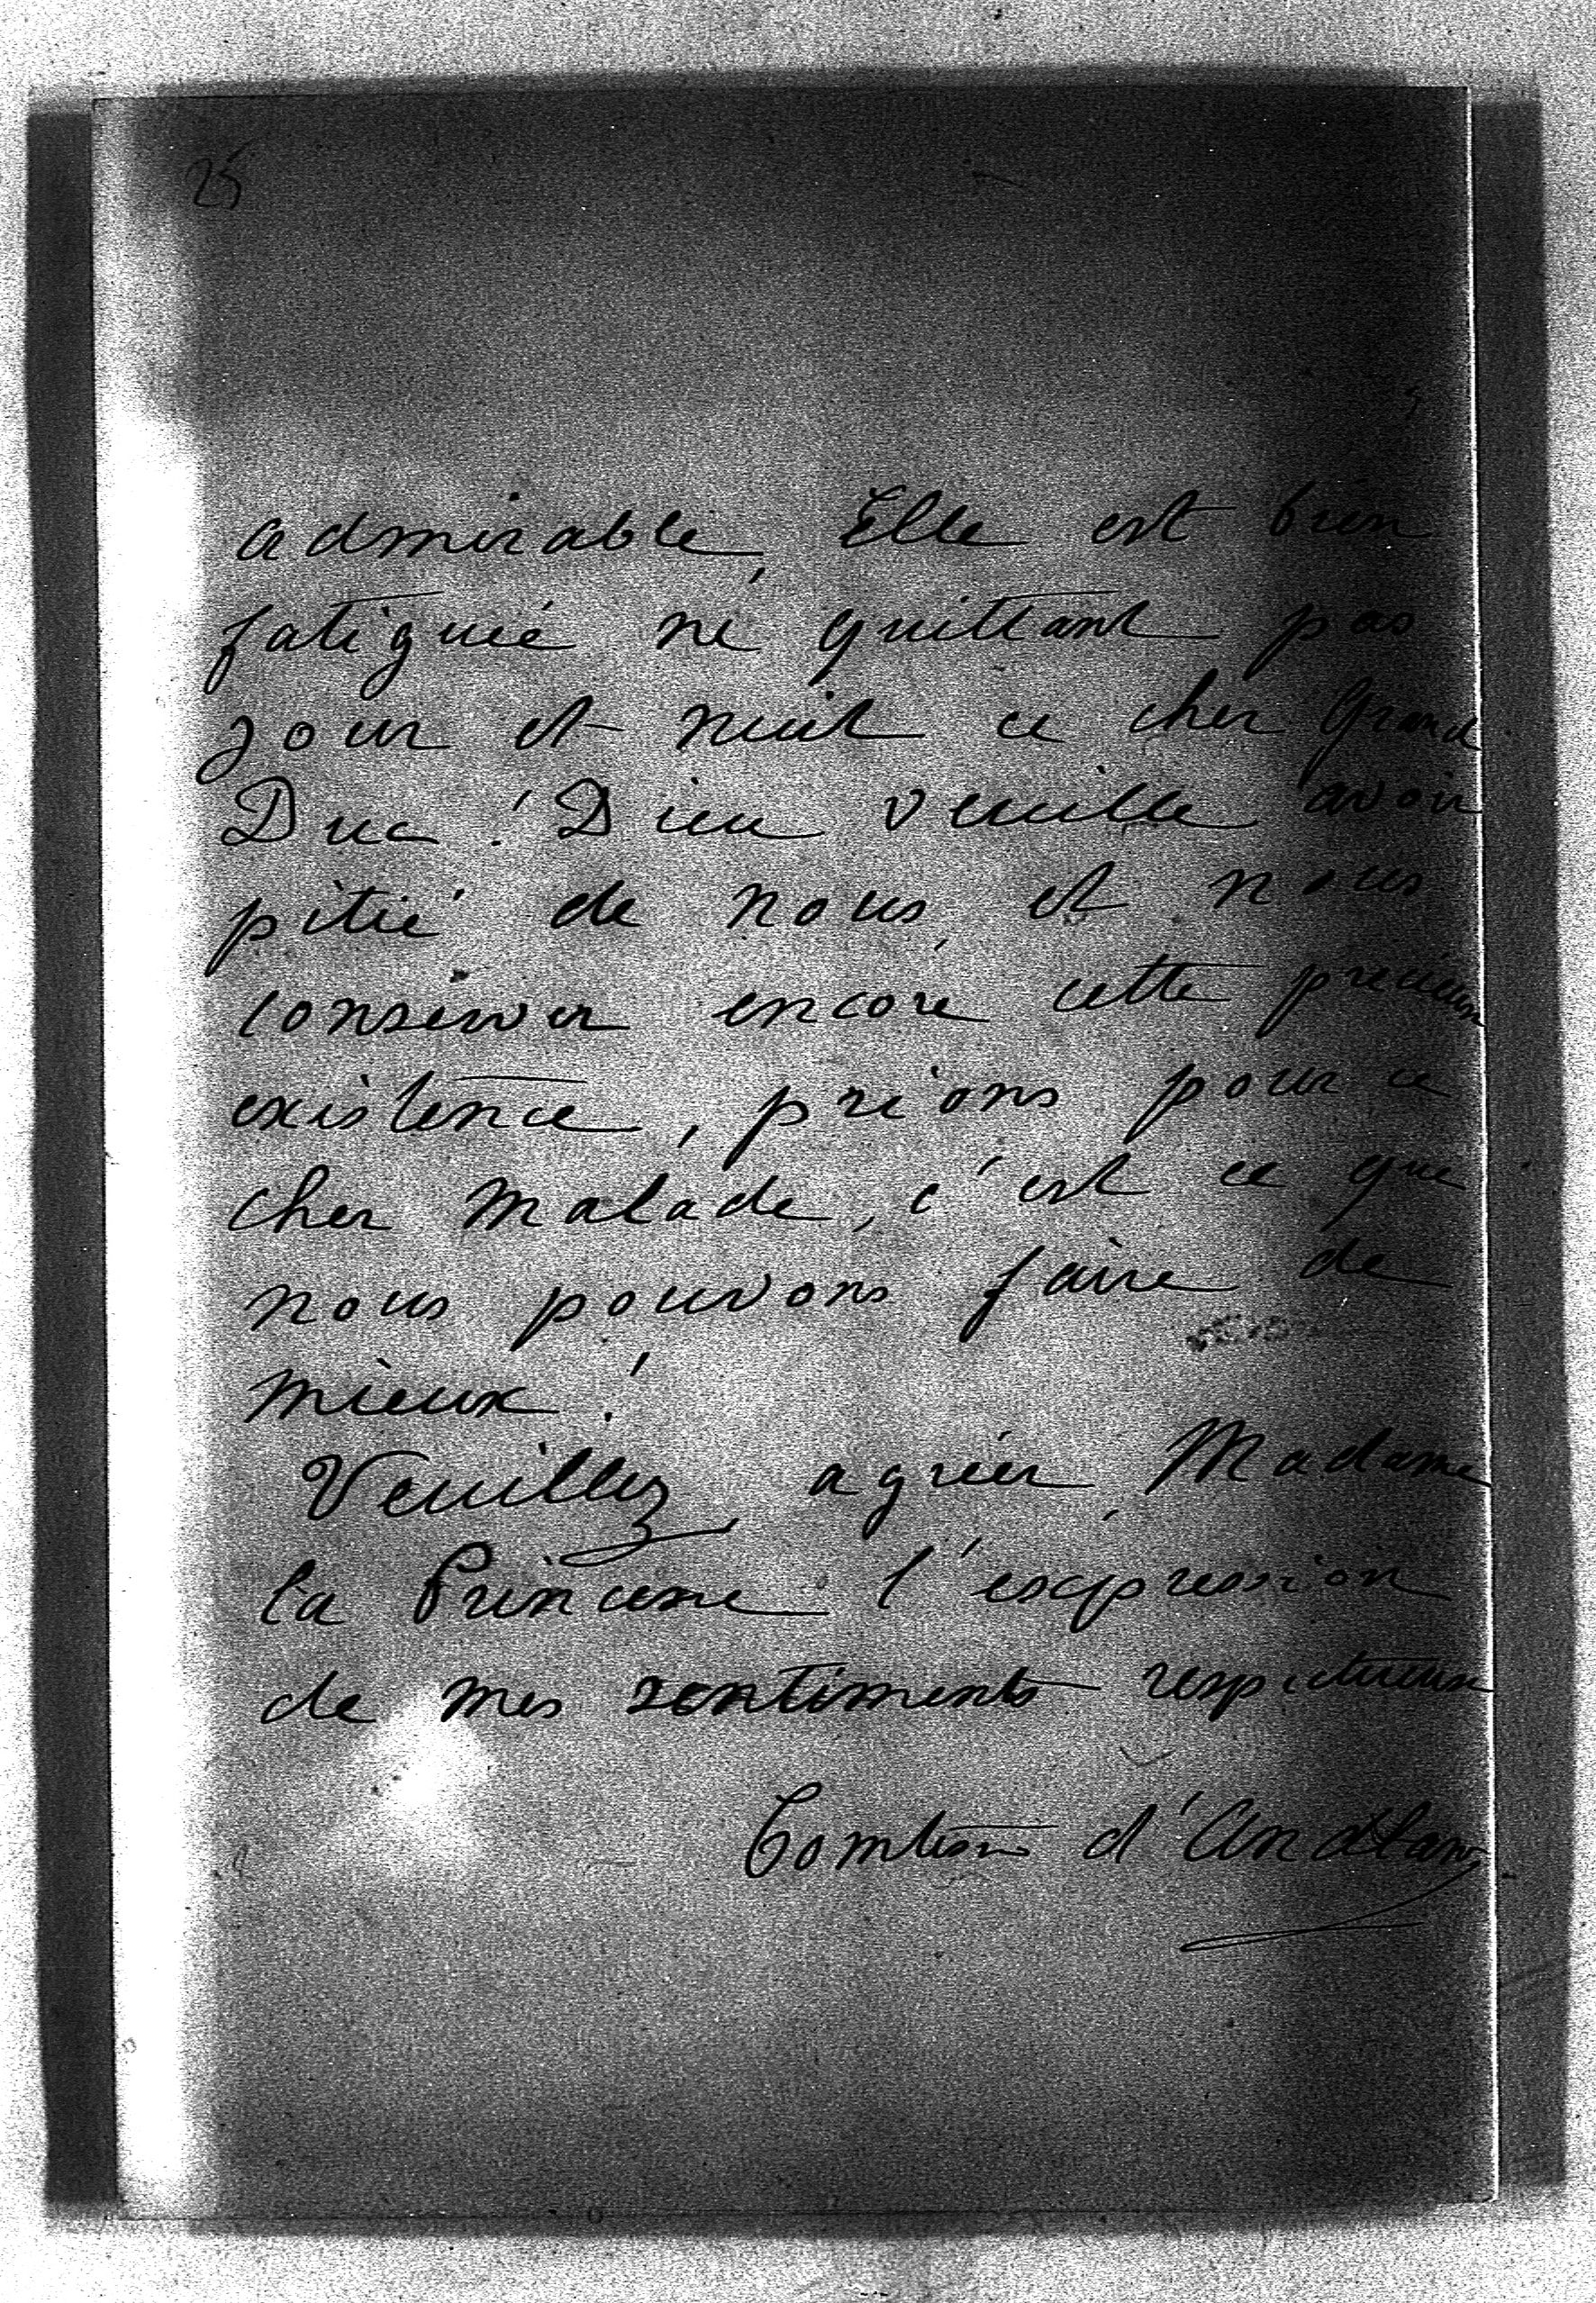 25
admirable, Elle est bien
fatiguée ne quittant pas
jour et nuit ce cher Grand
Duc! Dieu veuille avoir
pitié de nous, et nous
conserver encore cette precieuse
existence, prions pour ce
cher malade, c'est ce que
nous pouvons faire de
mieux!
Veuillez agréer, Madame
la Princesse l'expression
de mes sentiments respectueux
Comtesse d'Andlau